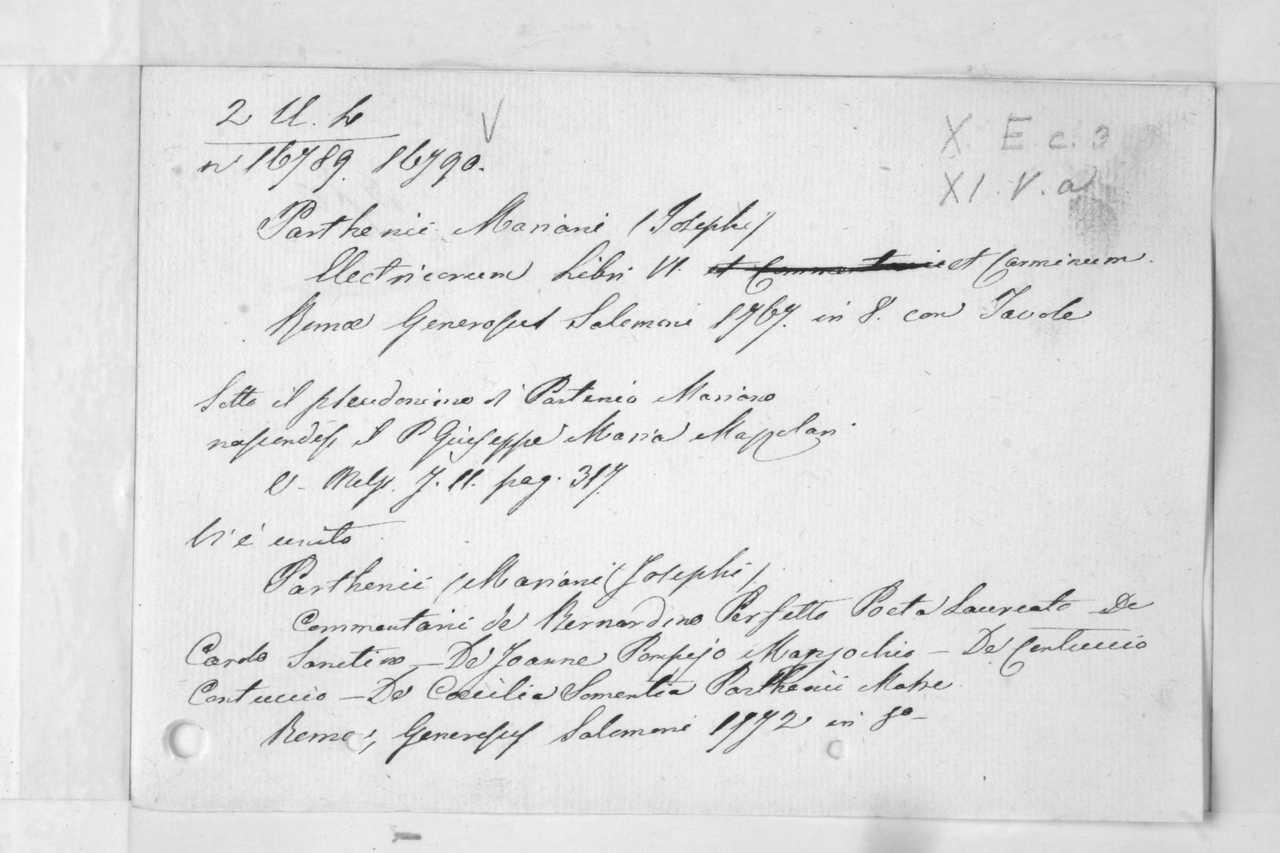 2 U. h
n 16789. 16790. V
X. E. c. 3
XI. V. a
Parthenii Mariani (Josephi)
Electricorum Libri VI. et Carminum.
Romæ Generosus Salomoni 1767. in 8. con Tavole
Sotto il pseudonimo di Partenio Mariano
nascondesi il P Giuseppe Maria Mazzolari.
V. Melzi. T. II. pag. 317.
Vi è unito
Parthenii (Mariani (Josephi)
Commentarii de Bernardino Perfetto Poeta Laureato – De
Cardo Sanctino – De Joanne Pompejo Marzochio – De Contuccio
Contuccio – De Cæcilia Parthenii Matre
Romæ, Generosus Salomoni 1772 in 8º